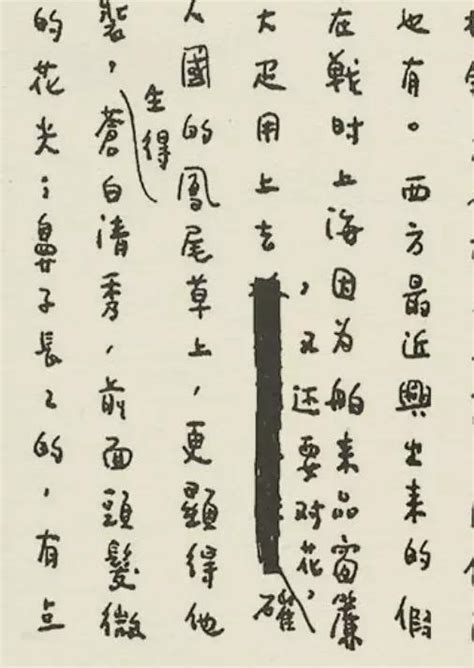 也有。西方最近興出来的假
在戰时上海因为舶来品窗簾
大疋用上去，又还要对花，確
人國的鳳尾草上，更顯得他
生得
裝，蒼白清秀，前面頭髮微
的花尖；鼻子長〻的，有点